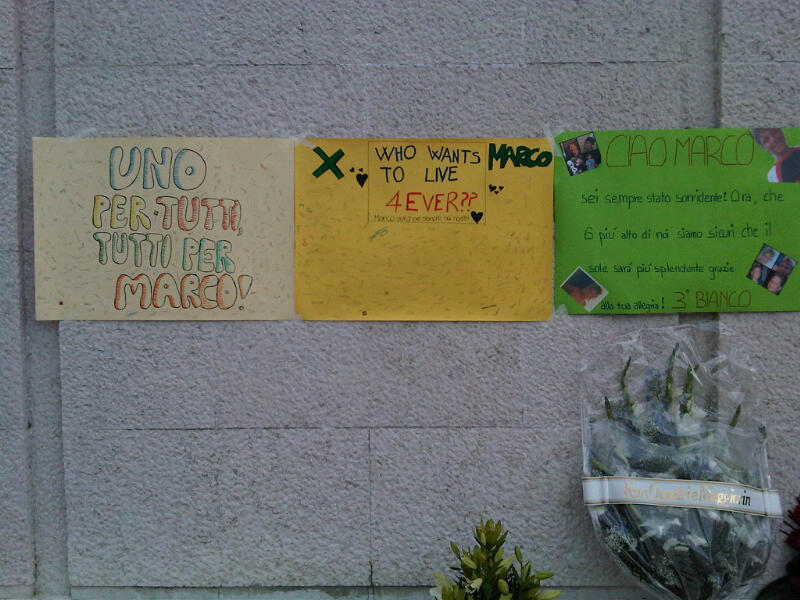 UNO
PER TUTTI,
TUTTI PER
MARCO!
X
WHO WANTS
TO LIVE
4EVER??
Marco vivrà per sempre nei nostri
MARCO
CIAO MARCO
sei sempre stato sorridente! Ora, che
6 più alto di noi siamo sicuri che il
sole sarà più splendente grazie
alla tua allegria! 3° BIANCO